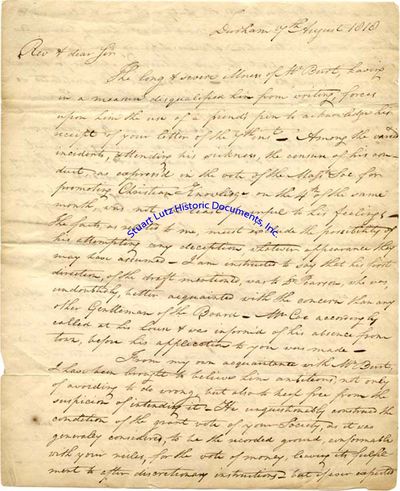 Durham 7th August 1818
Rev & dear Sir
The long & severe illness of Mr Burt, having
in a measure disqualified him from writing, forces
upon him the use of a friends pen to acknowledge the
receipt of your letter of the 7th inst – Among the varied
incidents, attending his sickness, the censure of his con-
duct, as expressed in the vote of the Mass Soc for
promoting Christian Knowledge on the 4th of the same
month, was not the least painful to his feelings –
The facts, as related to me, must preclude the possibility of
his attempting any deception, whatever appearance they
may have assumed – I am instructed to say that his first
direction, of the draft mentioned, was to Dr Pearson, who was,
undoubtedly, better acquainted with the concern than any
other Gentleman of the Board – Mr Coe accordingly
called at his house & was informed of his absence from
town, before his application to you was made –
From my own acquaintance with Mr Burt,
I have been brought to believe him ambitious, not only
of avoiding to do wrong, but also to keep free from the
suspicion of intending it – He unquestionably construed the
condition of the grant vote of your Society, as it was
generally considered, to be the recorded ground, conformable
with your rules, for the vote of money, leaving its fulfil-
ment to after discretionary instructions – but if ever expected
Stuart Lutz Historic Documents, Inc.